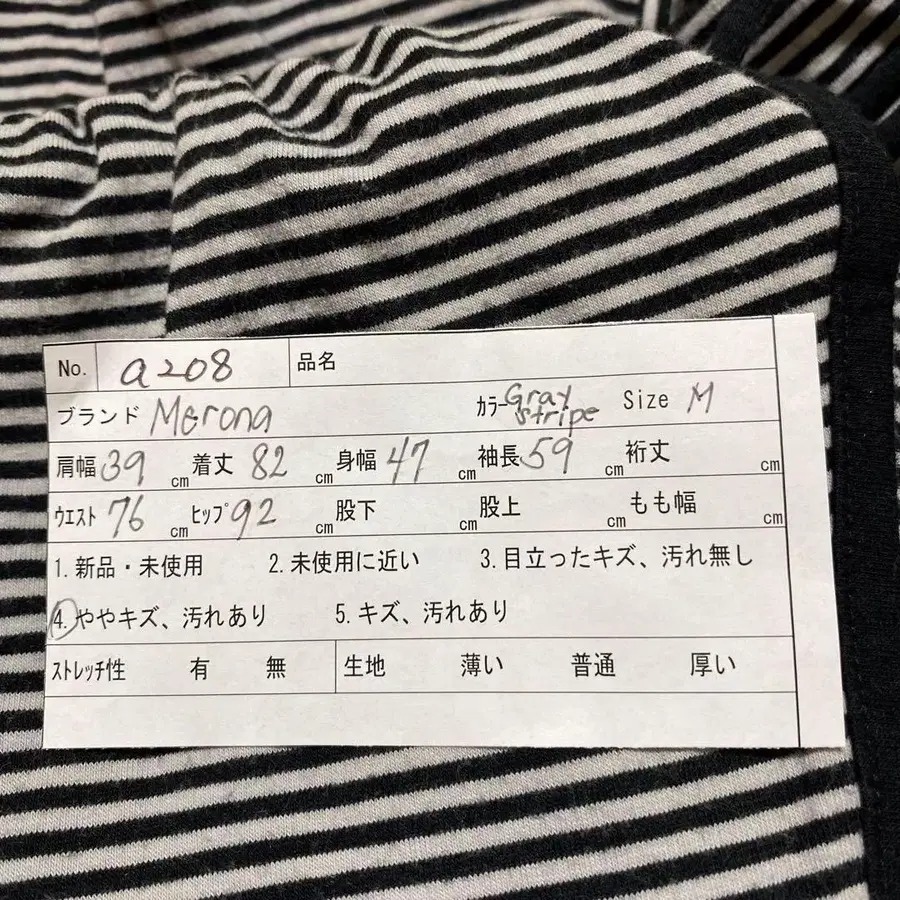 No. a208 品名
ブランド Merona カラー Gray stripe Size M
肩幅 39 cm 着丈 82 cm 身幅 47 cm 袖長 59 cm 裄丈 cm
ウエスト 76 cm ヒップ 92 cm 股下 cm 股上 cm もも幅 cm
1.新品・未使用 2.未使用に近い 3.目立ったキズ、汚れ無し
4.ややキズ、汚れあり 5.キズ、汚れあり
ストレッチ性 有 無 生地 薄い 普通 厚い